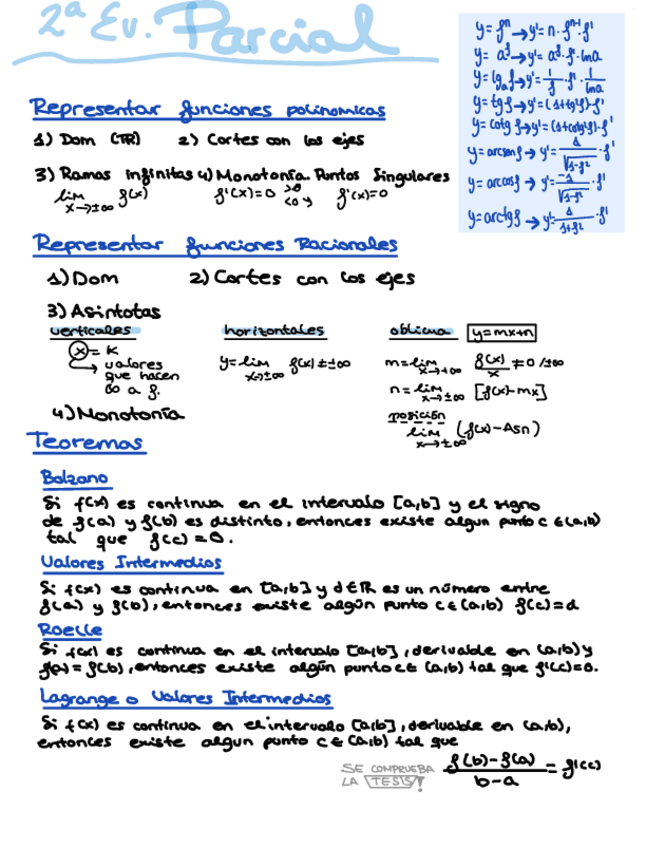 2ª Ev. Parcial
y = fⁿ → y' = n · fⁿ⁻¹ · f'
y = aᶠ → y' = aᶠ · f' · lna
y = lgₐ f → y' = 1/f · f' · 1/lna
y = tg f → y' = (1+tg²f) · f'
y = cotg f → y' = (1+cotg²f) · f'
y = arcsen f → y' = 1/√(1-f²) · f'
y = arcos f → y' = -1/√(1-f²) · f'
y = arctg f → y' = 1/(1+f²) · f'
Representar funciones polinomicas
1) Dom (TR) 2) Cortes con los ejes
3) Ramas infinitas 4) Monotonía. Puntos Singulares
lim x→±∞ f(x) f'(x)=0 >0 <0 y f'(x)=0
Representar funciones Racionales
1) Dom 2) Cortes con los ejes
3) Asintotas
verticales horizontales oblicua y=mx+n
x = K y = lim x→±∞ f(x) ≠ ±∞ m = lim x→+∞ f(x)/x ≠ 0/±∞
→ valores
que hacen n = lim x→±∞ [f(x)-mx]
∞ a f.
4) Monotonía posición
lim x→±∞ (f(x)-Asn)
Teoremas
Bolzano
Si f(x) es continua en el intervalo [a,b] y el signo
de f(a) y f(b) es distinto, entonces existe algun punto c ∈ (a,b)
tal que f(c) = 0.
Valores Intermedios
Si f(x) es continua en [a,b] y d∈ℝ es un número entre
f(a) y f(b), entonces existe algún punto c∈(a,b) f(c)=d
Roelle
Si f(x) es continua en el intervalo [a,b], derivable en (a,b) y
f(a) = f(b), entonces existe algún punto c∈ (a,b) tal que f'(c)=0.
Lagrange o Valores Intermedios
Si f(x) es continua en el intervalo [a,b], derivable en (a,b),
entonces existe algun punto c ∈ (a,b) tal que
SE COMPRUEBA
LA TESIS! f(b)-f(a)/b-a = f'(c)